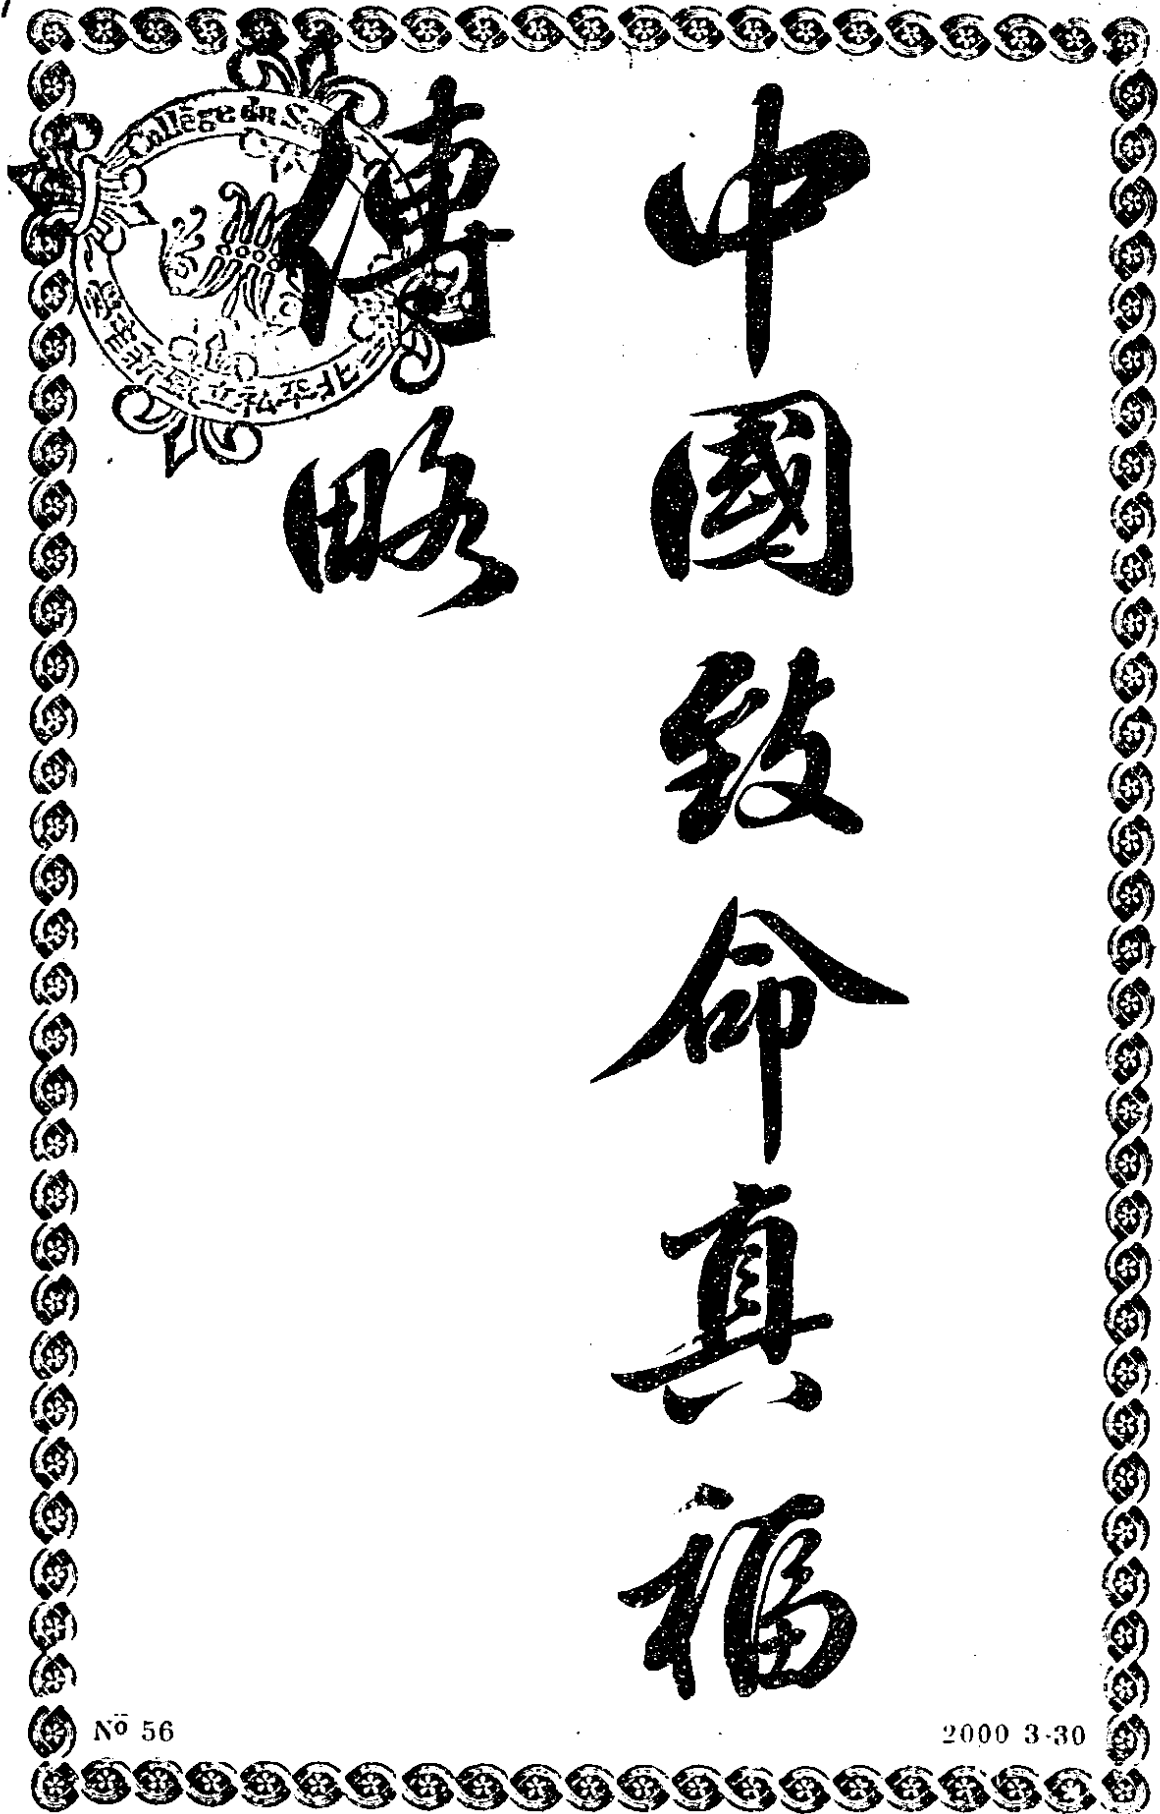 中國致命真福
傳略
Collège du Sa
№ 56
2000 3-30